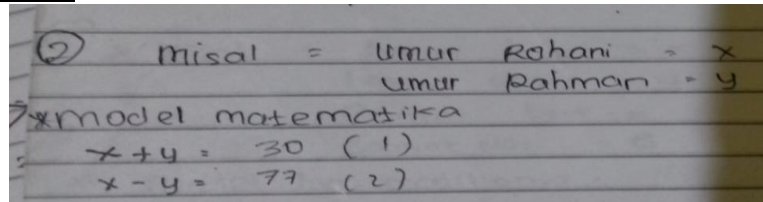 ② misal = umur Rohani = x
umur Rahman = y
*model matematika
x + y = 30 (1)
x - y = 77 (2)